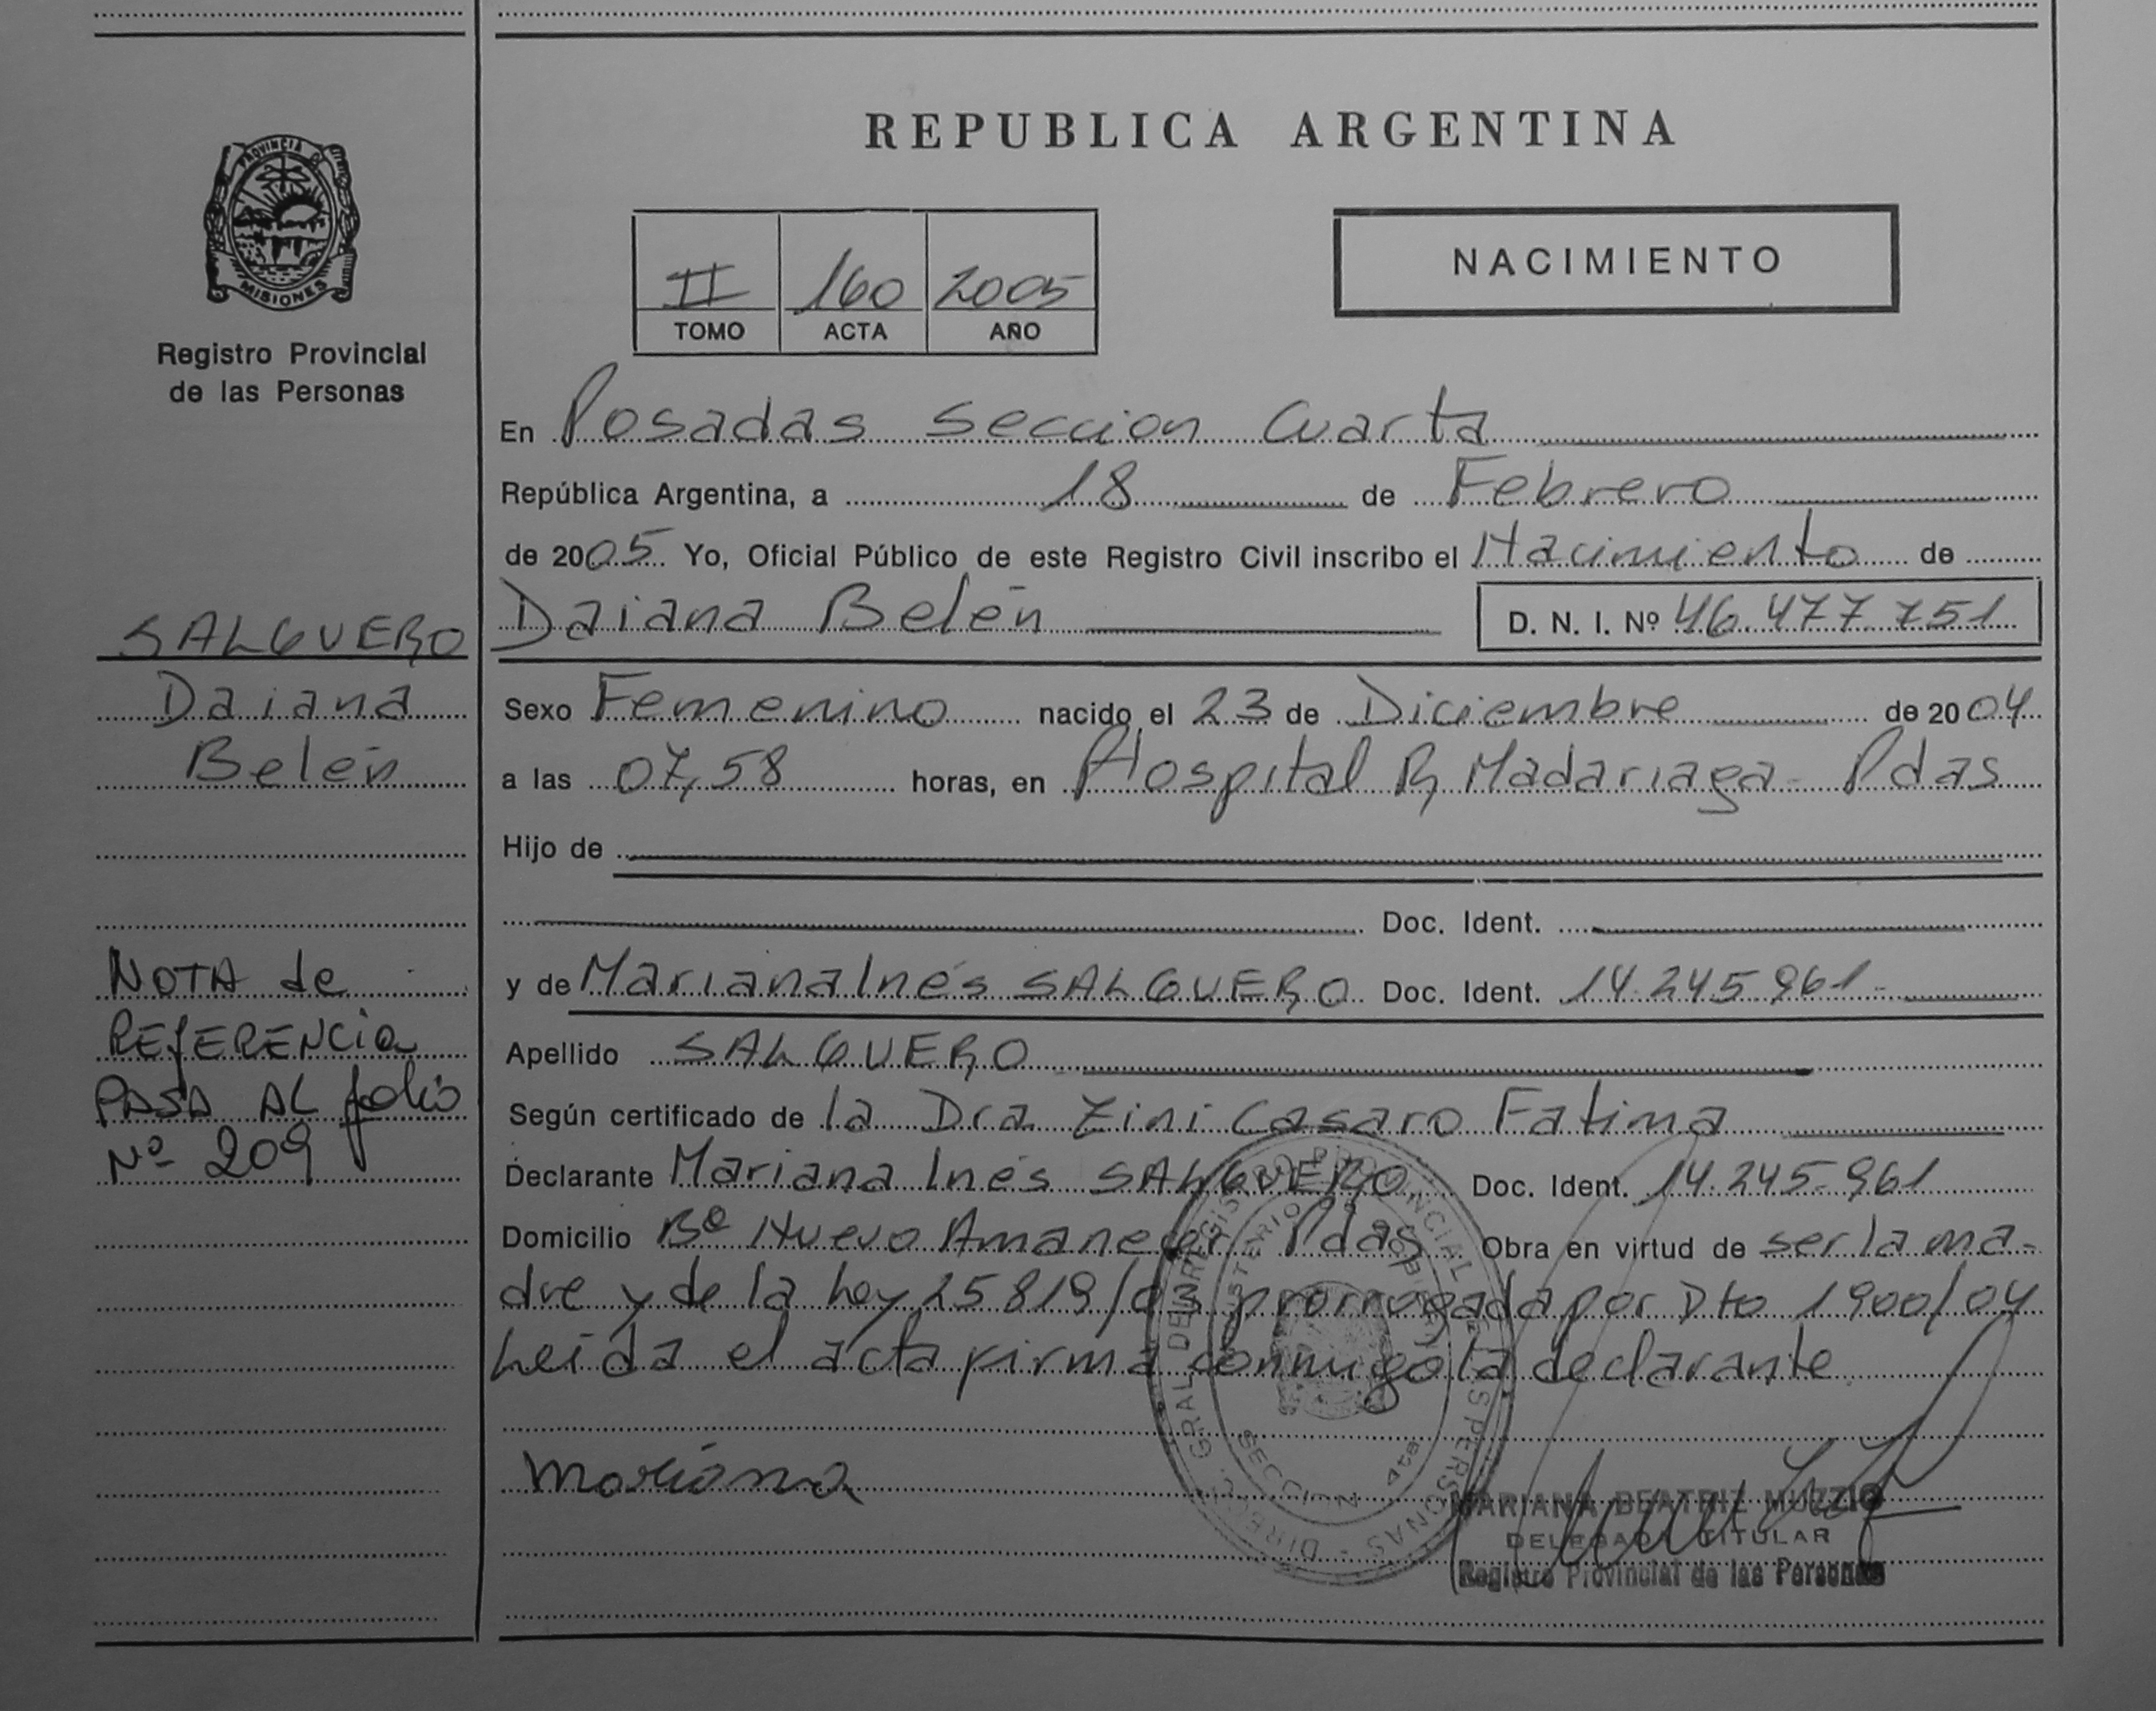 PROVINCIA D
MISIONES
Registro Provincial
de las Personas
SALGUERO
Daiana
Belén
NOTA de
REfERENCia
PASA AL folio
Nº 209
REPUBLICA ARGENTINA
II 160 2005
TOMO ACTA AÑO
NACIMIENTO
En Posadas Seccion Cuarta
República Argentina, a 18 de Febrero
de 2005 Yo, Oficial Público de este Registro Civil inscribo el Nacimiento de
Daiana Belén D. N. I. Nº 46.477.751
Sexo Femenino nacido el 23 de Diciembre de 2004
a las 07,58 horas, en Hospital R, Madariaga - Pdas
Hijo de
Doc. Ident.
y de Mariana Inés SALGUERO Doc. Ident. 14.245.961
Apellido SALGUERO
Según certificado de la Dra Zini Casaro Fatima
Declarante Mariana Inés SALGUERO Doc. Ident. 14.245.961
Domicilio Bº Nuevo Amanecer Pdas Obra en virtud de ser la ma-
dre y de la Ley 25819/03 prorrogada por Dto 1900/04
Leída el acta firma conmigo la declarante
Mariana
DIREC. GRAL. DEL REGISTRO PROVINCIAL DE LAS PERSONAS -
MINISTERIO DE GOBIERNO
SECCION 4ta
MARIANA BEATRIZ MUZZIO
DELEGADA TITULAR
Registro Provincial de las Personas